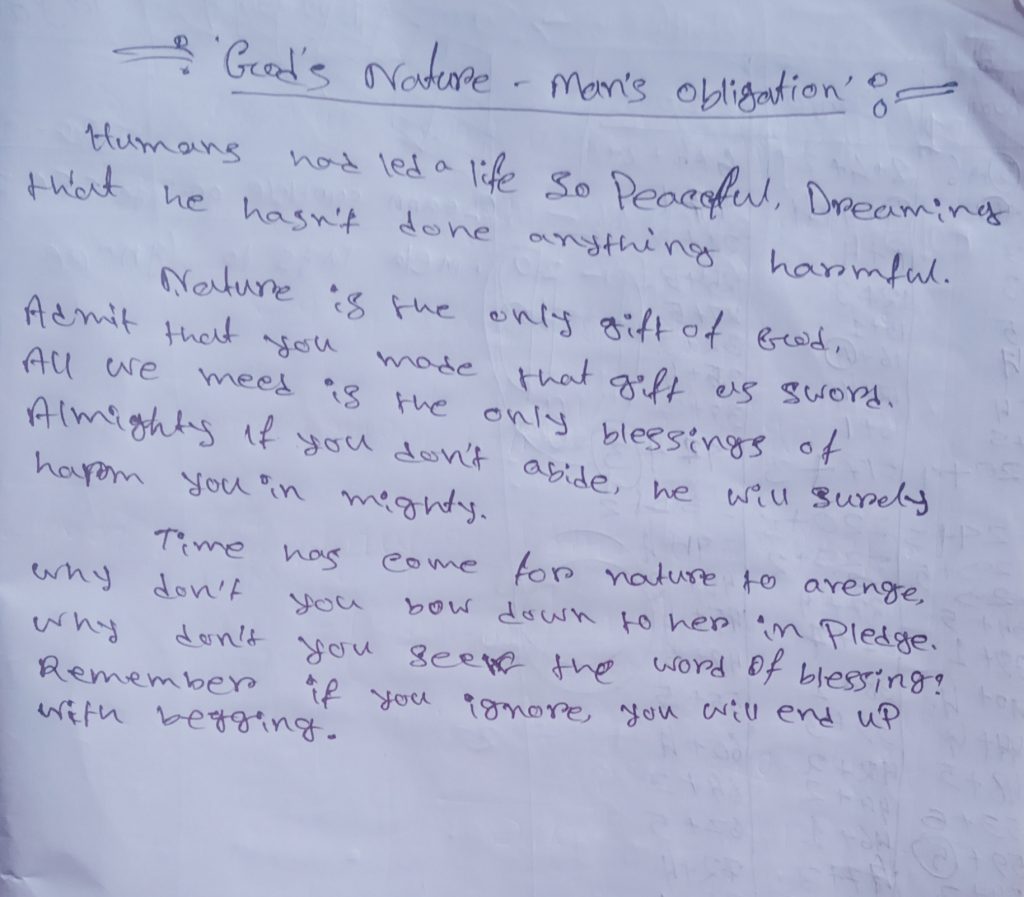 'God's Nature - Man's obligation'
Humans had led a life so Peaceful, Dreaming
that he hasn't done anything harmful.
Nature is the only gift of God,
Admit that you made that gift as sword.
All we need is the only blessings of
Almighty if you don't abide, he will surely
harm you in mighty.
Time has come for nature to avenge,
why don't you bow down to her in Pledge.
why don't you seek the word of blessing?
Remember if you ignore, you will end up
with begging.